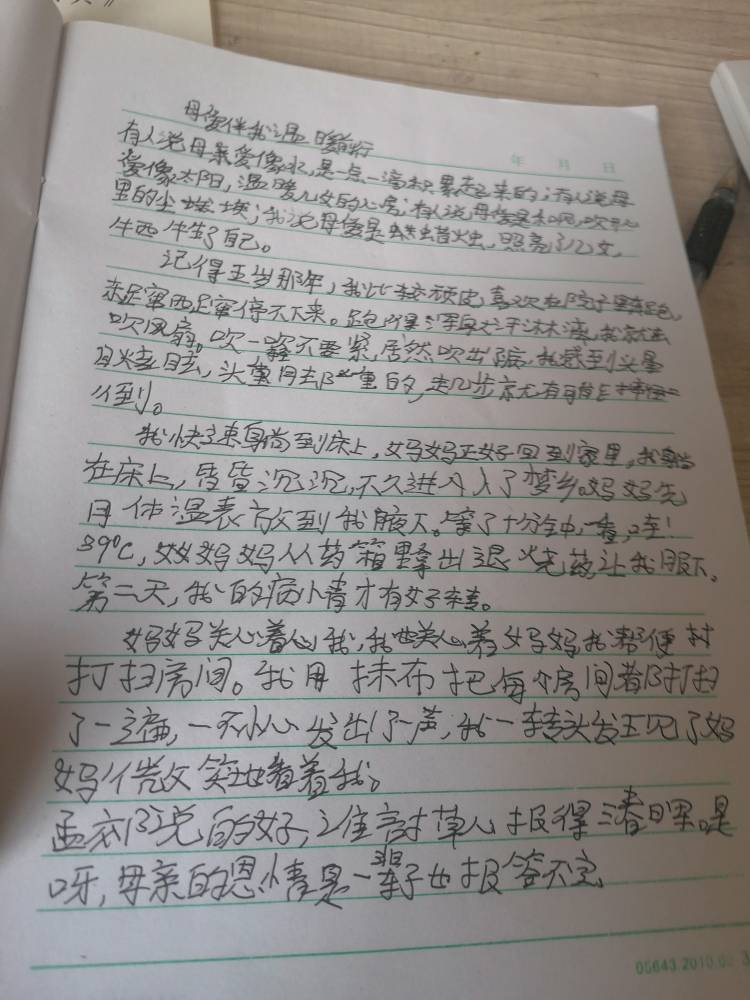 母爱伴我温暖前行
年 月 日
有人说母亲爱像水,是一点一滴积累起来的;有人说母
爱像太阳,温暖儿女的心房;有人说母爱是春风,吹
里的尘埃埃;我说母爱是蜡火虫,照亮了儿女,
牛西牛生了自己。
记得五岁那年,我比较顽皮,喜欢在院子里奔跑,
东足窜西足窜停不下来。跑得浑身大汗淋漓,我就去
吹风扇。吹一吹不要紧,居然吹出了病,我感到头晕
目眩,头重
倒。
我快速身尚到床上,妈妈正好回到家里,我身尚
在床上,昏昏沉沉,不久进入了梦乡。妈妈先
用体温表放到我腋下。等了十分钟,一看,哇!
39℃,妈妈从药箱里拿出退烧药,让我服下。
第二天,我的病情才有好转。
妈妈关心着我,我也关心着妈妈,我帮便
打扫房间。我用抹布把每个房间都打扫
了一遍,一不小心发出了一声,我一转头发现了妈
妈微笑地看着我。
孟郊说的好,谁言寸草心报得三春晖。是
呀,母亲的恩情是一辈子也报答不完
05643.2010.02